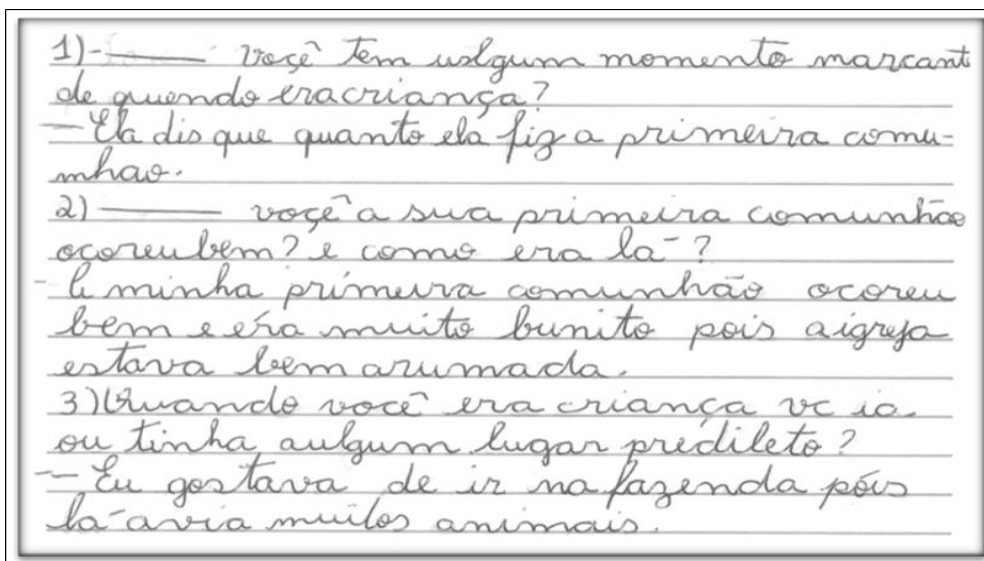 1)- ——— voçê tem ualgum momento marcant
de quendo eracriança?
— Ela dis que quanto ela fiz a primeira comu-
nhao.
2) ——— voçê a sua primeira comunhão
ocoreu bem? e como era la-?
- A minha primeira comunhão ocoreu
bem e era muito bunito pois aigreja
estava bem arumada.
3) Quando você era criança vc ia
ou tinha aulgum lugar predileto?
— Eu gostava de ir na fazenda pois
la-avia muitos animais.